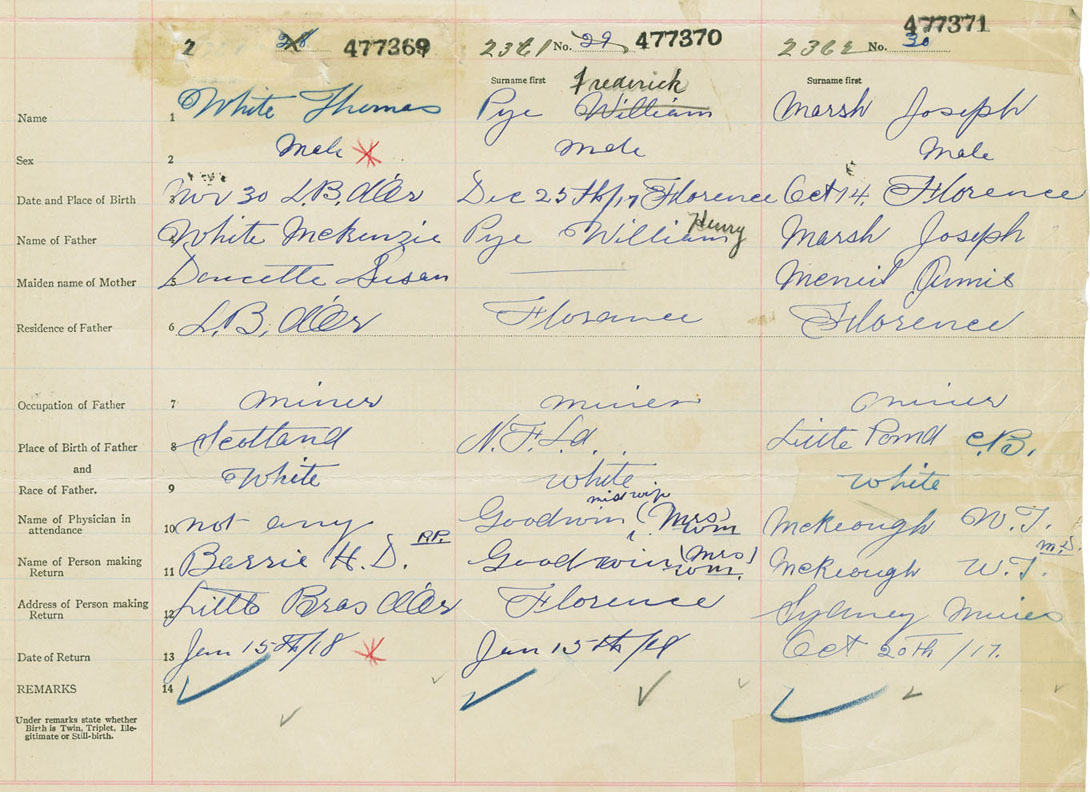 2 28 477369 2361 No. 29 477370 2362 No. 30 477371
Surname first Frederick Surname first
Name 1 White Thomas Pye William Marsh Joseph
Sex 2 Male Male Male
Date and Place of Birth 3 Nov 30 L.B. d'Or Dec 25th/17 Florence Oct 14, Florence
Name of Father 4 White McKenzie Pye William Henry Marsh Joseph
Maiden name of Mother 5 Doucette Susan Annie
Residence of Father 6 L.B. d'Or Florence Florence
Occupation of Father 7 miner miner miner
Place of Birth of Father 8 Scotland N.F.Ld. Little Pond C.B.
and
Race of Father. 9 White White White
midwife
Name of Physician in
attendance 10 not any Goodwin (Mrs Wm) McKeough W.J. M.D.
Name of Person making
Return 11 Barrie H.D. R.P. Goodwin (Mrs Wm.) McKeough W.J.
Address of Person making
Return 12 Little Bras d'Or Florence Sydney Mines
Date of Return 13 Jan 15th/18 Jan 15th/18 Oct 20th/17.
REMARKS 14
Under remarks state whether
Birth is Twin, Triplet, Ille-
gitimate or Still-birth.